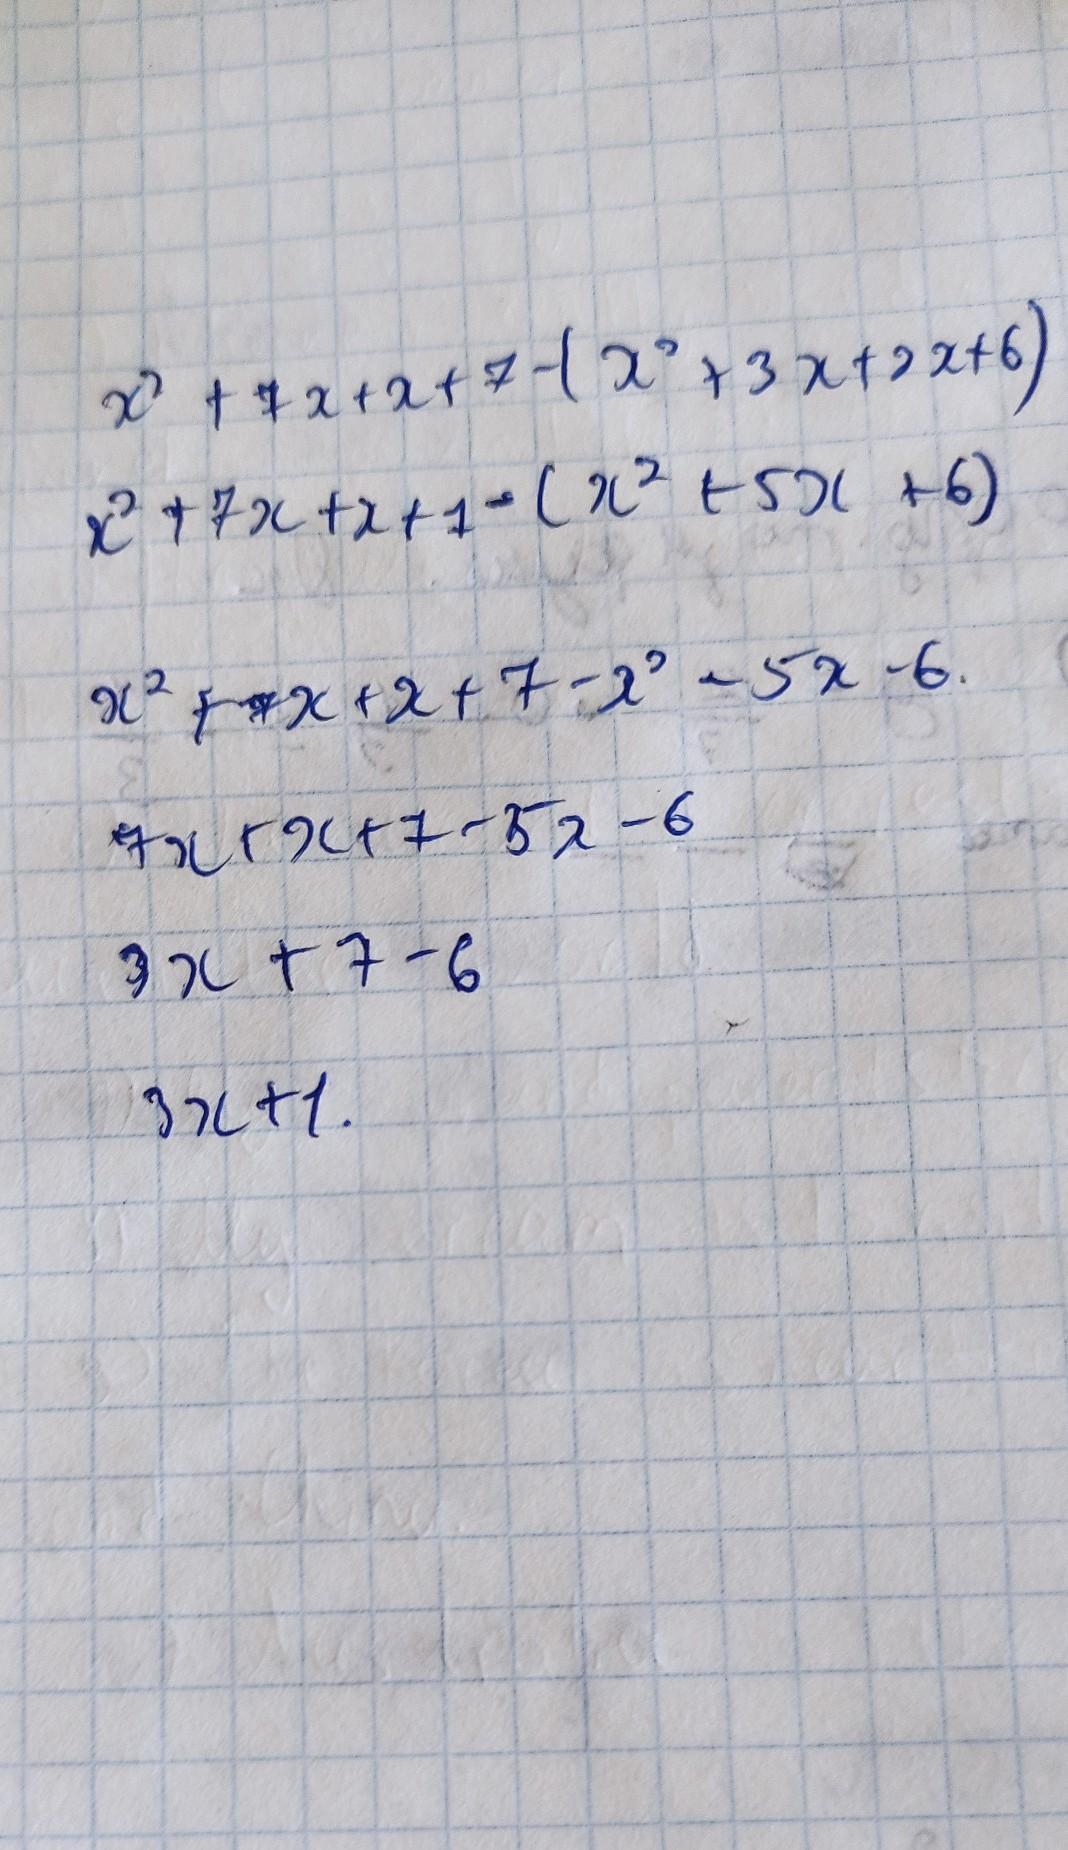 x² + 7x + x + 7 - (x² + 3x + 2x + 6)
x² + 7x + x + 1 - (x² + 5x + 6)
x² + 7x + x + 7 - x² - 5x - 6.
7x + x + 7 - 5x - 6
3x + 7 - 6
3x + 1.